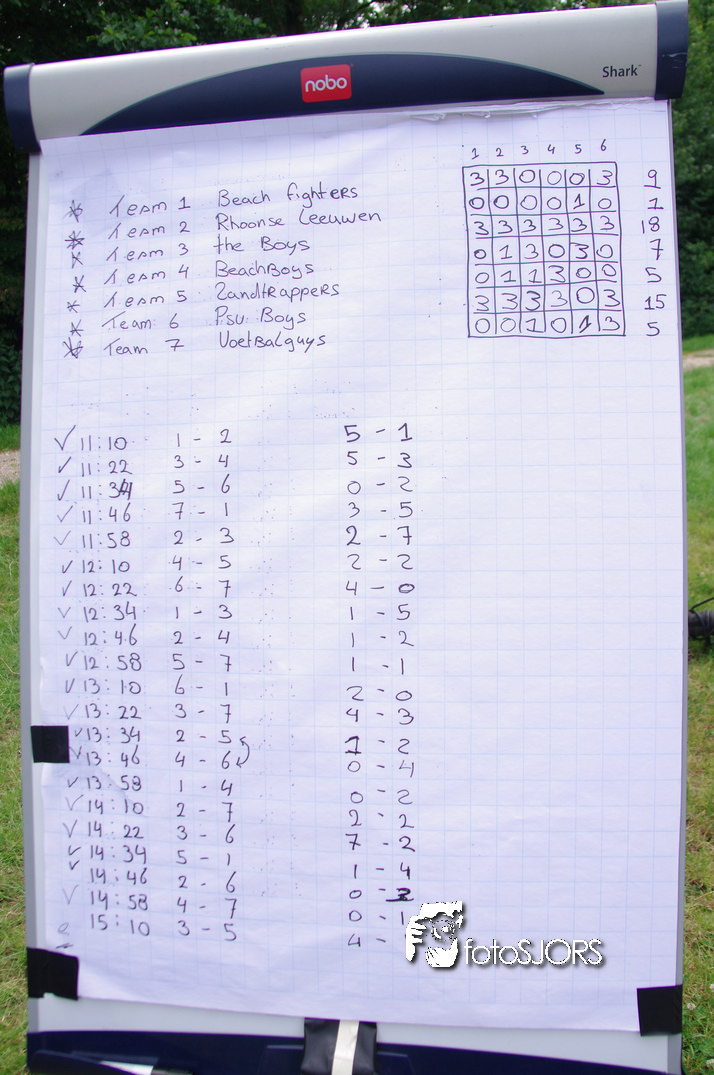 nobo
Shark™
1 2 3 4 5 6
Team 1 Beach fighters 3 3 0 0 0 3 9
Team 2 Rhoonse Leeuwen 0 0 0 0 1 0 1
Team 3 the Boys 3 3 3 3 3 3 18
Team 4 BeachBoys 0 1 3 0 3 0 7
Team 5 Zandtrappers 0 1 1 3 0 0 5
Team 6 Psv Boys 3 3 3 3 0 3 15
Team 7 Voetbalguys 0 0 1 0 1 3 5
✓ 11:10 1 - 2 5 - 1
✓ 11:22 3 - 4 5 - 3
✓ 11:34 5 - 6 0 - 2
✓ 11:46 7 - 1 3 - 5
✓ 11:58 2 - 3 2 - 7
✓ 12:10 4 - 5 2 - 2
✓ 12:22 6 - 7 4 - 0
✓ 12:34 1 - 3 1 - 5
✓ 12:46 2 - 4 1 - 2
✓ 12:58 5 - 7 1 - 1
✓ 13:10 6 - 1 2 - 0
✓ 13:22 3 - 7 4 - 3
✓ 13:34 2 - 5 1 - 2
✓ 13:46 4 - 6 0 - 4
✓ 13:58 1 - 4 0 - 2
✓ 14:10 2 - 7 2 - 2
✓ 14:22 3 - 6 7 - 2
✓ 14:34 5 - 1 1 - 4
✓ 14:46 2 - 6 0 -
✓ 14:58 4 - 7 0 - 1
15:10 3 - 5 4 -
fotoSJORS